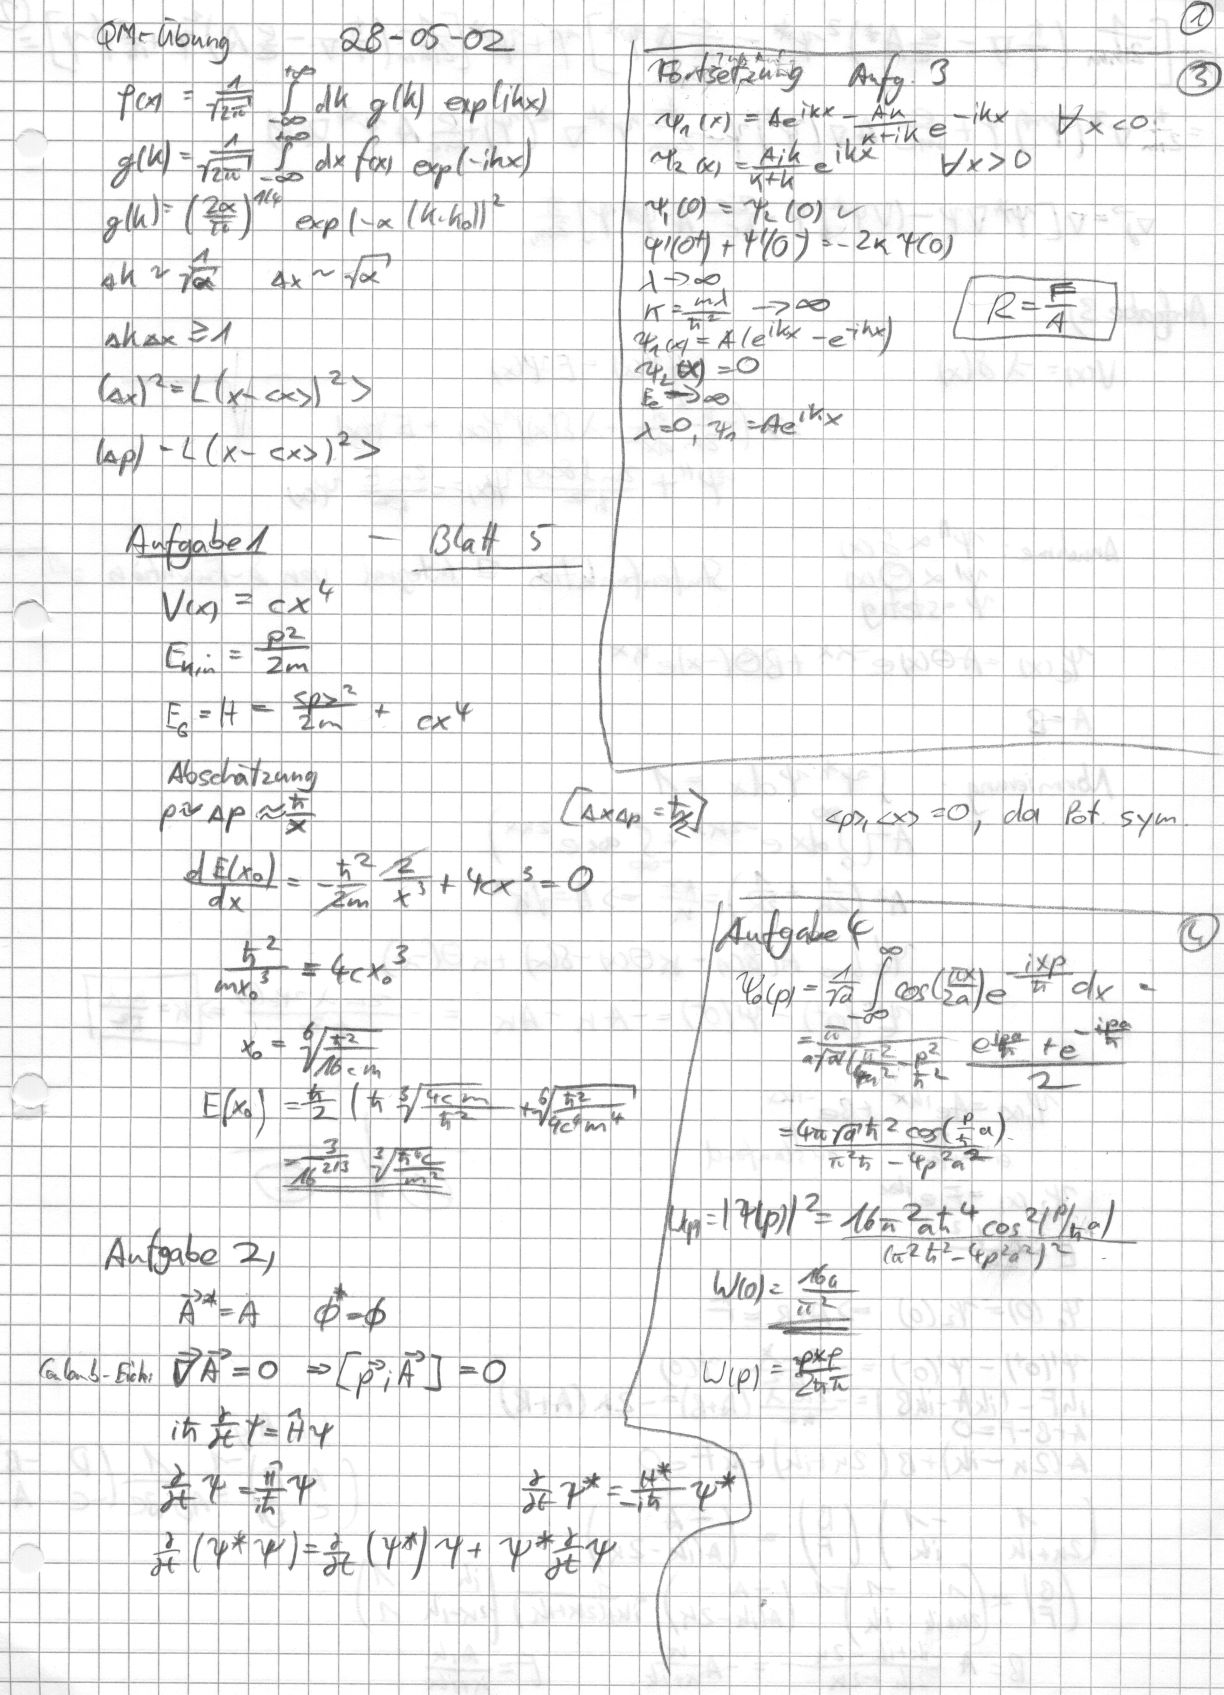 ①
QM-Übung 28-05-02
f(x) = 1/√2π ∫_{-∞}^{+∞} dk g(k) exp(ikx)
g(k) = 1/√2π ∫_{-∞}^{+∞} dx f(x) exp(-ikx)
g(k) = (2α/π)^{1/4} exp(-α (k-k₀))²
Δk ~ 1/√α Δx ~ √α
Δk Δx ≥ 1
(Δx)² = <(x-<x>)²>
(Δp) - <(x-<x>)²>
Aufgabe 1 - Blatt 5
V(x) = cx⁴
E_kin = p²/2m
E_G = H = <p>²/2m + cx⁴
Abschätzung
p ≈ Δp ≈ ħ/x [Δx Δp = ħ] <p>, <x> = 0, da Pot. sym.
dE(x₀)/dx = -ħ²/2m 2/x³ + 4cx³ = 0
ħ²/mx₀³ = 4cx₀³
x₀ = ⁶√(ħ²/16cm)
E(x₀) = ħ/2 (ħ ³√(4cm/ħ²) + ⁶√(ħ²/4c⁴m⁴)
= 3/16^{2/3} ³√(ħ⁴c/m²)
Aufgabe 2,
A⃗* = A ϕ* = ϕ
Coulomb-Eich: ∇⃗A⃗ = 0 ⇒ [p⃗, A⃗] = 0
iħ ∂/∂t ψ = Ĥψ
∂/∂t ψ = Ĥ/iħ ψ ∂/∂t ψ* = H*/-iħ ψ*
∂/∂t (ψ*ψ) = ∂/∂t (ψ*) ψ + ψ* ∂/∂t ψ
③
Fortsetzung Aufg. 3
ψ₁(x) = Ae^{ikx} - Aκ/κ+ik e^{-ikx} ∀x<0
ψ₂(x) = Aik/κ+k e^{ikx} ∀x>0
ψ₁(0) = ψ₂(0) ✓
ψ'(0⁺) + ψ'(0⁻) = -2κ ψ(0)
λ → ∞
κ = mλ/ħ² → ∞ R = F/A
ψ₁(x) = A(e^{ikx} - e^{-ikx})
ψ₂(x) = 0
→ ∞
λ = 0, ψ₁ = Ae^{ikx}
④
Aufgabe 4
ψ₀(p) = 1/√a ∫_{-∞}^{∞} cos(πx/2a) e^{-ixp/ħ} dx =
= π/a√a (π²/4a² - p²/ħ²) e^{ipa/ħ} + e^{-ipa/ħ}/2
= 4π√a ħ² cos(p/ħ a)/π²ħ - 4p²a²
W(p) = |ψ(p)|² = 16π²aħ⁴ cos²(p/ħ a)/(π²ħ² - 4p²a²)²
W(0) = 16a/π²
W(p) =